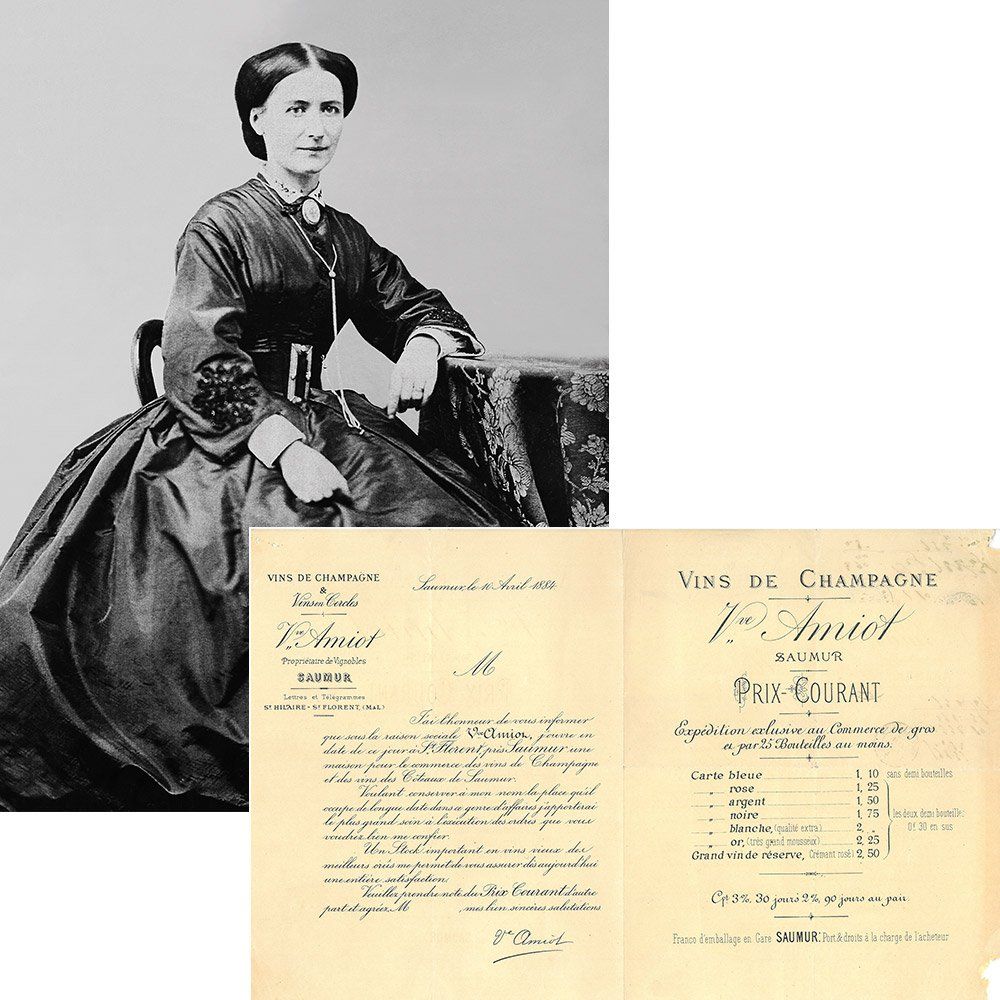 VINS DE CHAMPAGNE
&
Vins en Cercles
Vve Amiot
Propriétaire de Vignobles
SAUMUR
Lettres et Télégrammes
St HILAIRE - St FLORENT, (M&L)
Saumur, le 10 Avril 1884
M
J'ai l'honneur de vous informer
que sous la raison sociale Vve Amiot, j'ouvre en
date de ce jour à St Florent, près Saumur une
maison pour le commerce des vins de Champagne
et des vins des Côteaux de Saumur.
Voulant conserver à mon nom la place qu'il
occupe de longue date dans ce genre d'affaires j'apporterai
le plus grand soin à l'exécution des ordres que vous
voudrez bien me confier.
Un Stock important en vins vieux des
meilleurs crûs me permet de vous assurer dès aujourd'hui
une entière satisfaction.
Veuillez prendre note du Prix Courant d'autre
part et agréez, M , mes bien sincères salutations
Ve Amiot
VINS DE CHAMPAGNE
Vve Amiot
SAUMUR
PRIX-COURANT
Expédition exlusive au Commerce de gros
et par 25 Bouteilles au moins.
Carte bleue 1, 10 sans demi bouteilles
„ rose 1, 25
„ argent 1, 50
„ noire 1, 75 les deux demi bouteilles
„ blanche, (qualité extra) 2, „ 0f. 30 en sus
„ or, (très grand mousseux) 2, 25
Grand vin de réserve, (Crémant rosé) 2, 50
Cpt 3%, 30 jours 2%, 90 jours au pair.
Franco d'emballage en Gare SAUMUR: Port & droits à la charge de l'acheteur